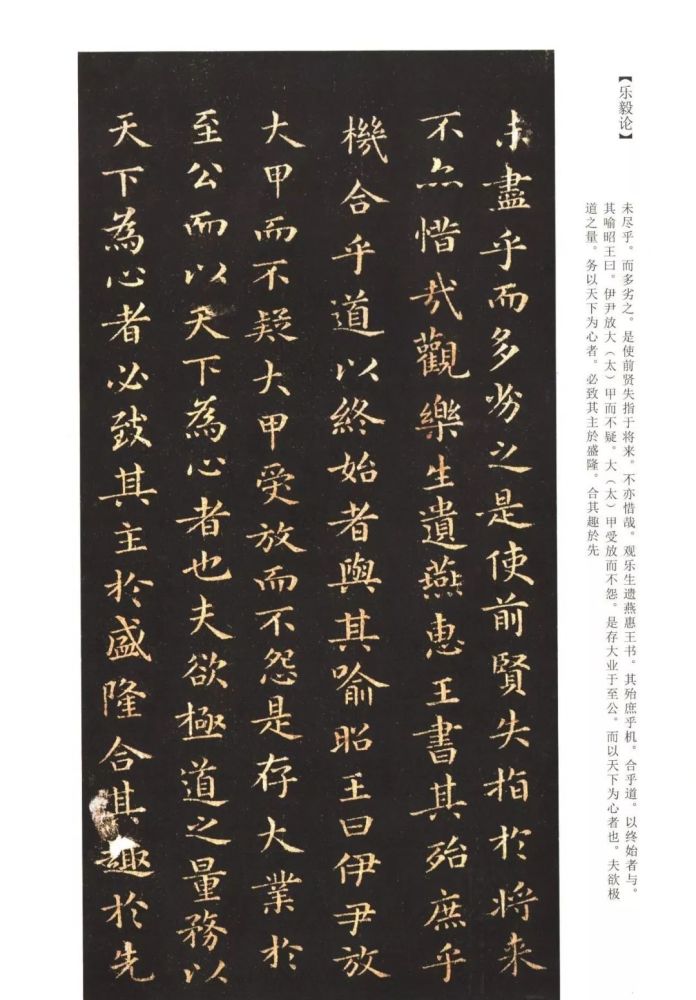 【乐毅论】
未尽乎。而多劣之。是使前贤失指于将来。不亦惜哉。观乐生遗燕惠王书。其殆庶乎机。合乎道。以终始者与。
其喻昭王曰。伊尹放大（太）甲而不疑。大（太）甲受放而不怨。是存大业于至公。而以天下为心者也。夫欲极
道之量。务以天下为心者。必致其主於盛隆。合其趣於先
未盡乎而多劣之是使前賢失指於將来
不亦惜哉觀樂生遺燕惠王書其殆庶乎
機合乎道以終始者與其喻昭王曰伊尹放
大甲而不疑大甲受放而不怨是存大業於
至公而以天下為心者也夫欲極道之量務以
天下為心者必致其主於盛隆合其趣於先